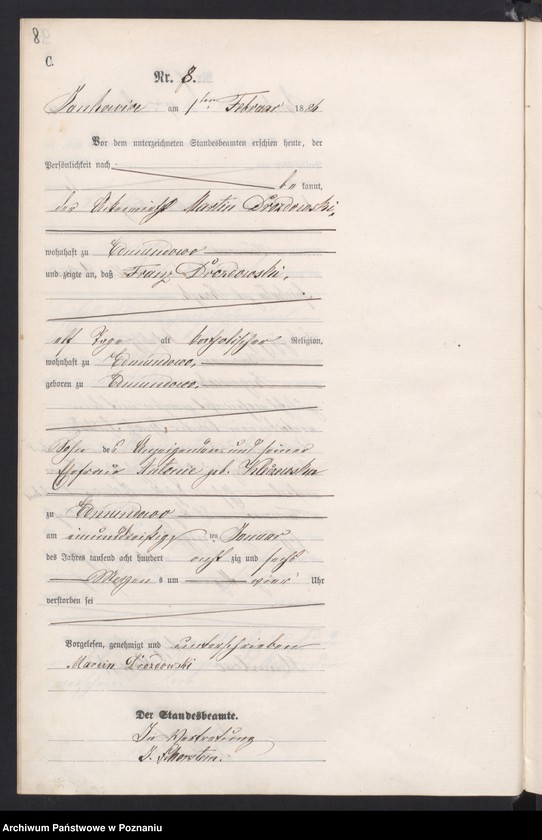 8
C.
Nr. 8.
Jankowice am 1ten Februar 1886
Vor dem unterzeichneten Standesbeamten erschien heute, der
Persönlichkeit nach
be kannt,
der Ackerwirth Martin Drozdowski,
wohnhaft zu Edmundowo
und zeigte an, daß Franz Drozdowski,
elf Tage alt katholischer Religion,
wohnhaft zu Edmundowo,
geboren zu Edmundowo,
Sohn des und seiner
Ehefrau Antonie geb.
zu Edmundowo
am einunddreißigsten Januar
des Jahres tausend acht hundert acht zig und sechs
Morgens um vier Uhr
verstorben sei
Vorgelesen, genehmigt und unterschrieben
Marcin Drozdowski
Der Standesbeamte.
In Vertretung
Archiwum Państwowe w Poznaniu